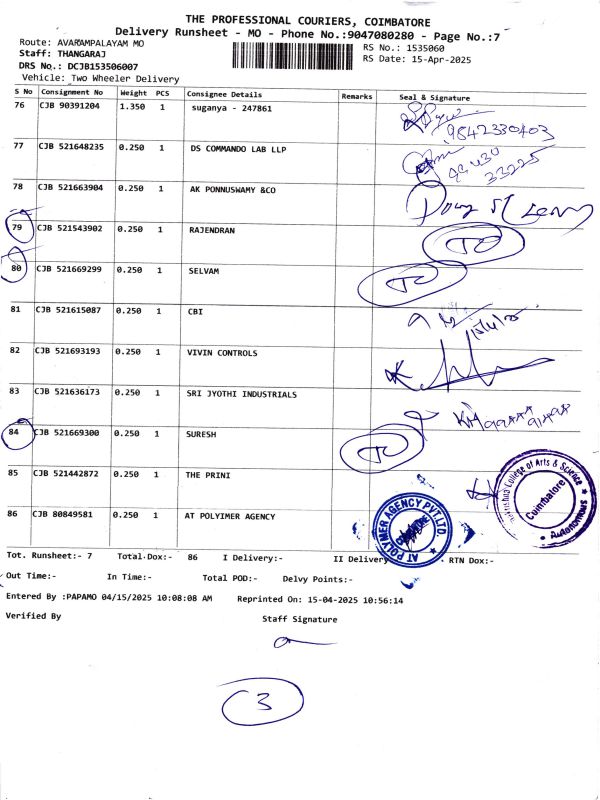 THE PROFESSIONAL COURIERS, COIMBATORE
Delivery Runsheet - MO - Phone No.:9047080280 - Page No.:7
Route: AVARAMPALAYAM MO
RS No.: 1535060
Staff: THANGARAJ
RS Date: 15-Apr-2025
DRS No.: DCJB153506007
Vehicle: Two Wheeler Delivery
S No Consignment No Weight PCS Consignee Details Remarks Seal & Signature
76 CJB 90391204 1.350 1 suganya - 247861
9842330403
77 CJB 521648235 0.250 1 DS COMMANDO LAB LLP
33225
78 CJB 521663904 0.250 1 AK PONNUSWAMY &CO
79 CJB 521543902 0.250 1 RAJENDRAN
TC
80 CJB 521669299 0.250 1 SELVAM
TC
81 CJB 521615087 0.250 1 CBI
82 CJB 521693193 0.250 1 VIVIN CONTROLS
83 CJB 521636173 0.250 1 SRI JYOTHI INDUSTRIALS
84 CJB 521669300 0.250 1 SURESH
TC
85 CJB 521442872 0.250 1 THE PRINI
College of Arts & Science
Coimbatore
Autonomous
86 CJB 80849581 0.250 1 AT POLYIMER AGENCY
AT POLYIMER AGENCY PVT.LTD.
Tot. Runsheet:- 7 Total-Dox:- 86 I Delivery:- II Delivery RTN Dox:-
Out Time:- In Time:- Total POD:- Delvy Points:-
Entered By :PAPAMO 04/15/2025 10:08:08 AM Reprinted On: 15-04-2025 10:56:14
Verified By Staff Signature
3